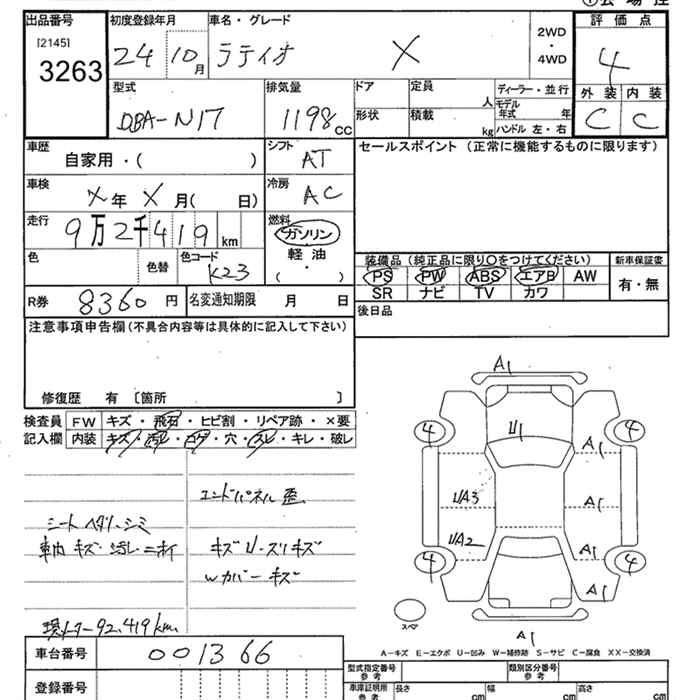 出品番号
[2145]
3263
初度登録年月
24 10月
車名・グレード
ラティオ X
2WD
・
4WD
評価点
4
外装 内装
C C
型式
DBA-N17
排気量
1198cc
ドア
形状
定員 人
積載 kg
ディーラー・並行
モデル年式 年
ハンドル 左・右
車歴
自家用・( )
シフト
AT
セールスポイント (正常に機能するものに限ります)
車検
X年 X月( 日)
冷房
AC
走行
9万2千419km
燃料
ガソリン
軽油
( ・ )
色
色替
色コード
K23
装備品 (純正品に限り○をつけてください)
PS PW ABS エアB AW
SR ナビ TV カワ
新車保証書
有・無
R券 8360円
名変通知期限 月 日
後日品
注意事項申告欄(不具合内容等は具体的に記入して下さい)
修復歴 有 〔箇所 〕
検査員記入欄
FW キズ・飛石・ヒビ割・リペア跡・×要
内装 キズ・汚れ・コゲ・穴・スレ・キレ・破レ
エンドパネル歪
シートヘタリ・シミ
車内キズ・汚レ・ニオイ
キズ U・スリキズ
Wカバーキズ
現メーター92,419km
A1
U1
4
4
A1
UA3
A1
UA2
A1
4
4
A1
スペア
A1
A-キズ E-エクボ U-凹み W-補修跡 S-サビ C-腐食 XX-交換済
車台番号
001366
登録番号
型式指定番号
参考
類別区分番号
参考
車庫証明所
参考
長さ cm
幅 cm
高さ cm